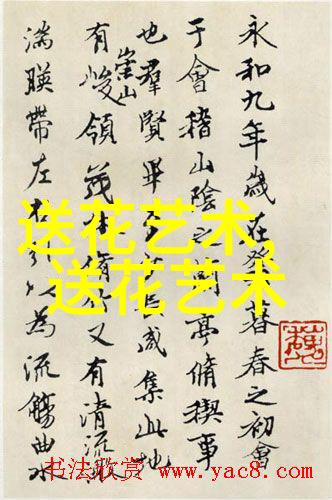 永和九年歲在癸暮春之初會
于會稽山陰之蘭亭脩禊事
也羣賢畢至咸集此地
有崇山峻領茂林脩竹又有清流激
湍暎帶左右引以為流觴曲水
送花艺术,
送花艺术
书法欣赏 www.yac8.com